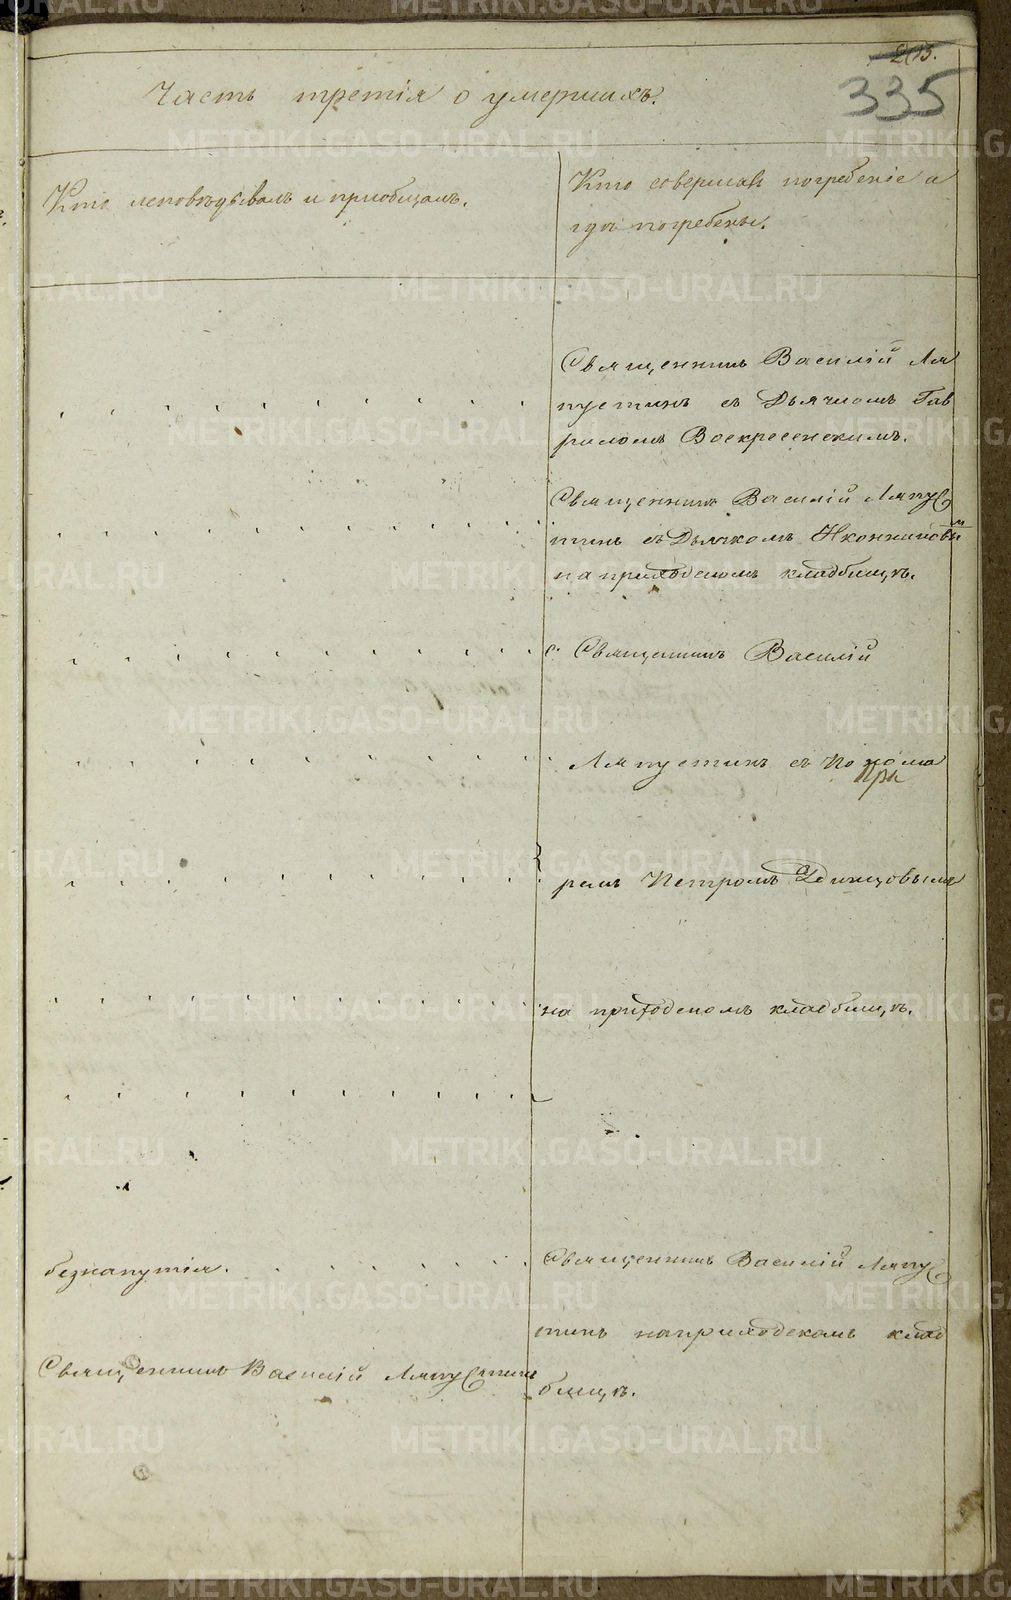 213.
335
Часть третія о умершихъ.
Кто исповѣдывалъ и приобщалъ.
Кто совершалъ погребеніе и
гдѣ погребены.
Священникъ Василій Ля
пустинъ съ Дьячкомъ Гав
риломъ Воскресенскимъ.
Священникъ Василій Ляпус
тинъ съ Дьячкомъ
на приходскомъ кладбищѣ.
Священникъ Василій
Ляпустинъ съ Понома
ремъ Петромъ
на приходскомъ кладбищѣ.
безнапутія.
Священникъ Василій Ляпус
тинъ наприходскомъ клад
бищѣ.
Священникъ Василій Ляпустинъ
METRIKI.GASO-URAL.RU